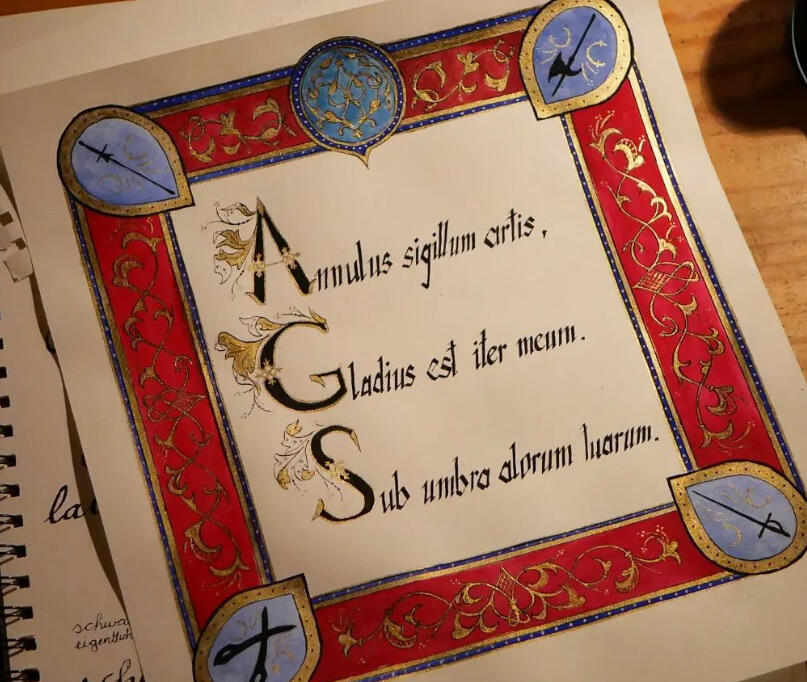 Annulus sigillum artis,
Gladius est iter meum.
Sub umbra alarum tuarum.
la
schwa
eigentlich